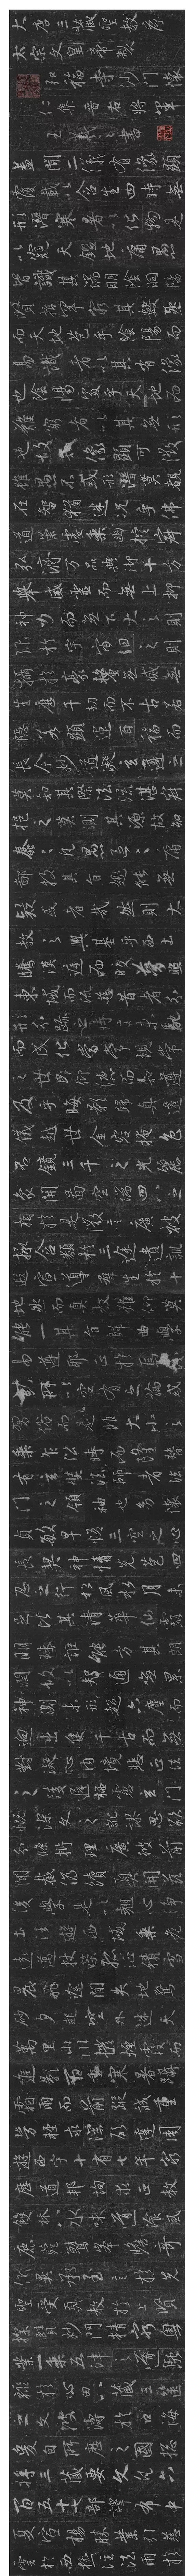 大唐三藏聖教序
太宗文皇帝製
弘福寺沙門懷
仁集晉右將軍
王羲之書
蓋聞二儀有像顯
覆載以含生四時無
形潛寒暑以化物是
以窺天鑑地庸愚
皆識其端明陰洞陽
賢哲罕窮其數然
而天地苞乎陰陽而
易識者以其有像
也陰陽處乎天地而
難窮者以其無形
也故知像顯可徵
雖愚不惑形潛莫覩
在智猶迷況乎佛
道崇虛乘幽控寂
弘濟萬品典御十方
舉威靈而無上抑
神力而無下大之則
彌於宇宙細之則
攝於毫釐無滅無
生歷千劫而不古若
隱若顯運百福而
長今妙道凝玄遵之
莫知其際法流湛寂
挹之莫測其源故知
蠢蠢凡愚區區庸
鄙投其旨趣能無
疑惑者哉然則大
教之興基乎西土
騰漢庭而皎夢照
東域而流慈昔者分
形分跡之時言未馳
而成化當常現常
之世民仰德而知遵
及乎晦影歸真遷
儀越世金容掩色
不鏡三千之光麗
象開圖空端四八之
相於是微言廣被
拯含類於三途遺訓
遐宣導群生於十
地然而真教難仰莫
能一其旨歸曲學
易遵邪正於焉
紛糾所以空有之論或
習俗而是非大小之
乘乍沿時而隆替
有玄奘法師者法
門之領袖也幼懷
貞敏早悟三空之心
長契神情先苞四
忍之行松風水月未
足比其清華仙露
明珠詎能方其朗
潤故以智通無累
神測未形超六塵而
迥出隻千古而無
對凝心內境悲正法
之陵遲栖慮玄門
慨深文之訛謬思欲
分條析理廣彼前
聞截偽續真開茲
後學是以翹心淨
土往遊西域乘危
遠邁杖策孤征積雪
晨飛途間失地驚
砂夕起空外迷天
萬里山川撥煙霞而
進影百重寒暑躡
霜雨而前蹤誠重
勞輕求深願達周
遊西宇十有七年窮
歷道邦詢求正教
雙林八水味道飡風
鹿菀鷲峯瞻奇
仰異承至言於先
聖受真教於上賢
探賾妙門精窮奧
業一乘五律之道馳
驟於心田八藏三篋
之文波濤於口海
爰自所歷之國總
將三藏要文凡六
百五十七部譯布中
夏宣揚勝業引慈
雲於西極注法雨於